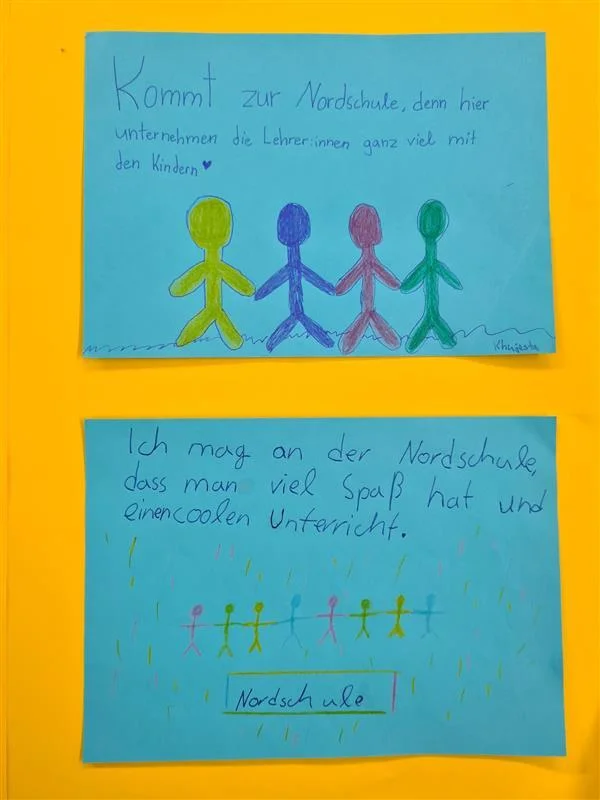 Kommt zur Nordschule, denn hier
unternehmen die Lehrer:innen ganz viel mit
den Kindern ♥
Ich mag an der Nordschule,
dass man viel Spaß hat und
einen coolen Unterricht.
Nordschule